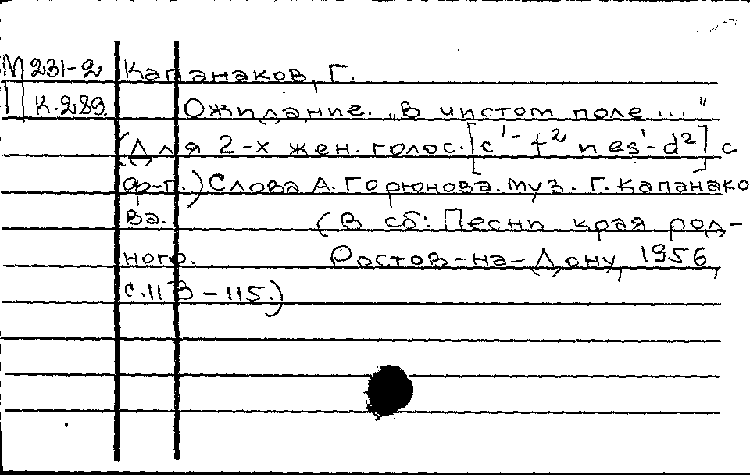 М 231-2 Капанаков, Г.
К.289 Ожидание. „В чистом поле..."
(Для 2-х жен. голос. [c¹- f² и es¹- d²] с
ф-п.) Слова А. Горюнова. муз. Г. Капанако
ва. (В сб: Песни края род-
ного. Ростов-на-Дону, 1956,
с. 113 - 115.)